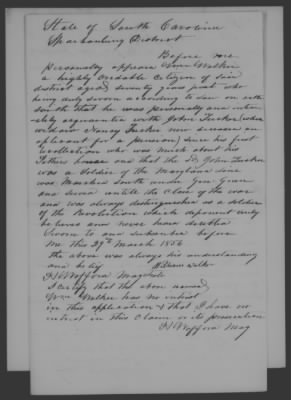 State of South Carolina
Spartanburg District
Before me
Personally appears Wm Walker
a highly credable Citizen of said
district aged seventy years past who
being duly sworn according to law on oath
saith that he was personally and inti-
mately acquainted with John Tucker (whose
widow Nancy Tucker now deceased an
aplicant for a pension) since his first
recollection who was much about his
Fathers house and that the sd John Tucker
was a Soldier of the Maryland line
was Marched South under Gen Green
and served untill the Close of the war
and was always distinguished as a soldier
of the Revolution which deponent verily
believes and never heard doubted
Sworn to and subscribed before
me this 29th March 1856
the above was always his understanding
and belief William Walker
H Wofford Magstrate
I certify that the above named
Wm Walker has no intrest
in this application & that I have no
intrest in this Claim or its prosecution
H Wofford Mag